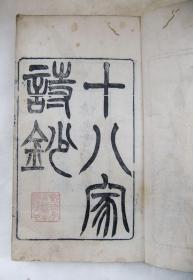 十八家
詩鈔